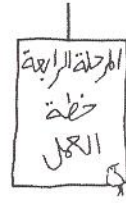 المرحلة الرابعة
خطة
العمل